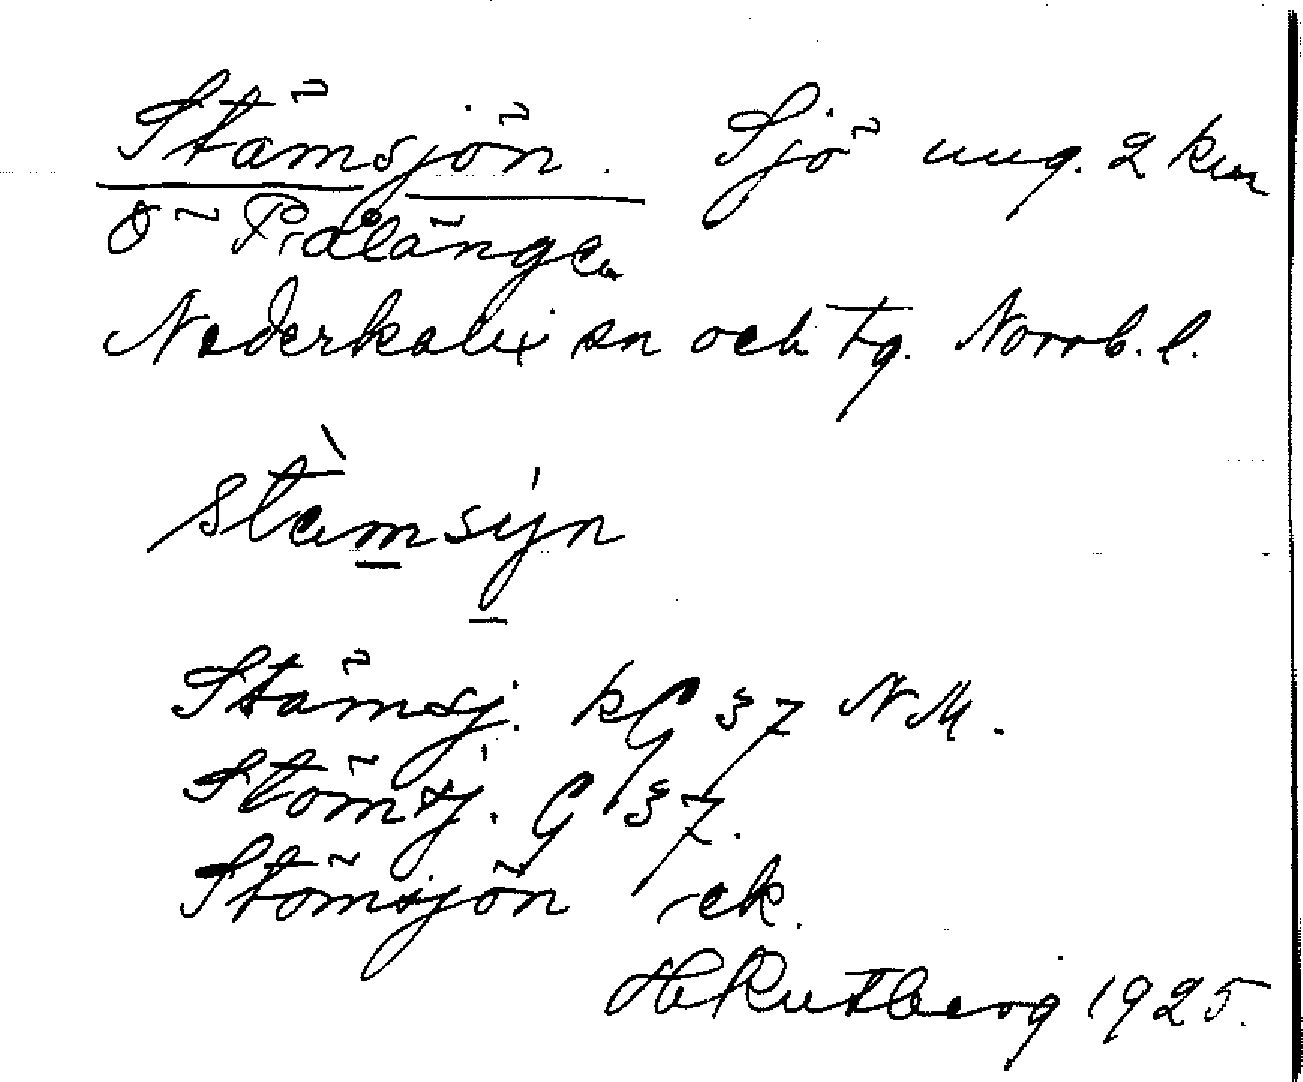 Stämsjön. Sjö ung. 2 km
ö Pålänge
Nederkalix sn och tg. Norrb. l.
stämsjn
Stämsj. kG 37 N M.
Stömsj. G 37.
Stömsjön ek.
H Rutberg 1925.